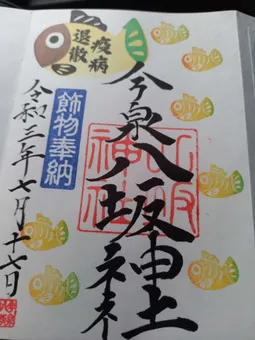 今泉八坂神社
八坂神社
疫病
退散
飾物奉納
令和三年七月十七日